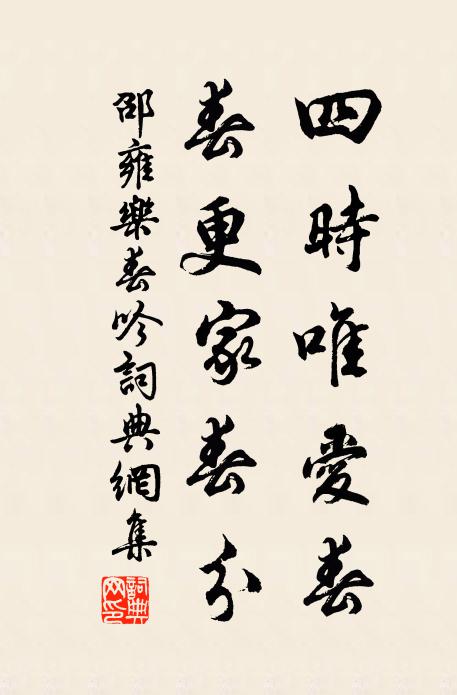 四時唯愛春
春更家春分
邵雍樂春吟詞典網集
詞典网印